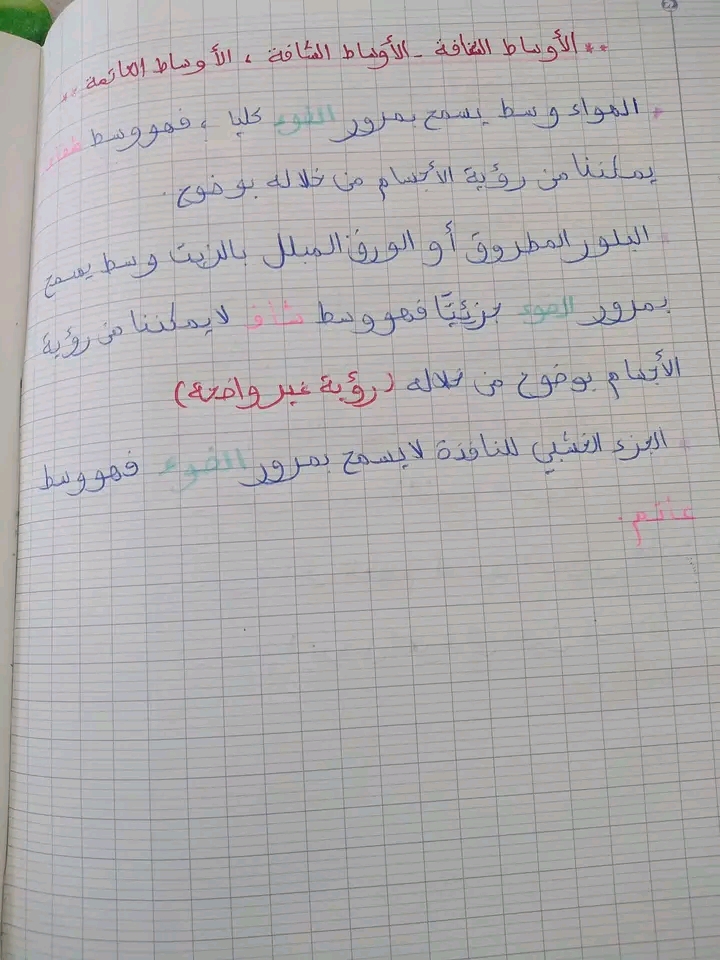 ** الأوساط الشفافة - الأوساط الشافة ، الأوساط العاتمة **
* الهواء وسط يسمح بمرور الضوء كليا ، فهو وسط شفاف
يمكننا من رؤية الأجسام من خلاله بوضوح.
البلور المطروق أو الورق المبلل بالزيت وسط يسمح
بمرور الضوء جزئيًا فهو وسط شاف لا يمكننا من رؤية
الأجسام بوضوح من خلاله (رؤية غير واضحة)
الجزء الخشبي للنافذة لا يسمح بمرور الضوء فهو وسط
عاتم.